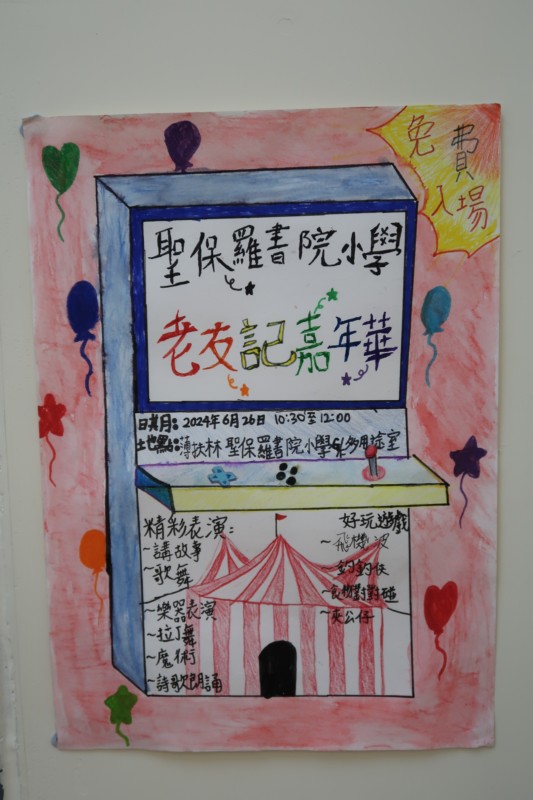 免費
入場
聖保羅書院小學
老友記嘉年華
日期: 2024年6月26日 10:30至12:00
地點: 薄扶林 聖保羅書院小學 多用途室
精彩表演:
~講故事
~歌舞
~樂器表演
~拉丁舞
~魔術
~詩歌朗誦
好玩遊戲
~飛機波
~食物對對碰
~夾公仔